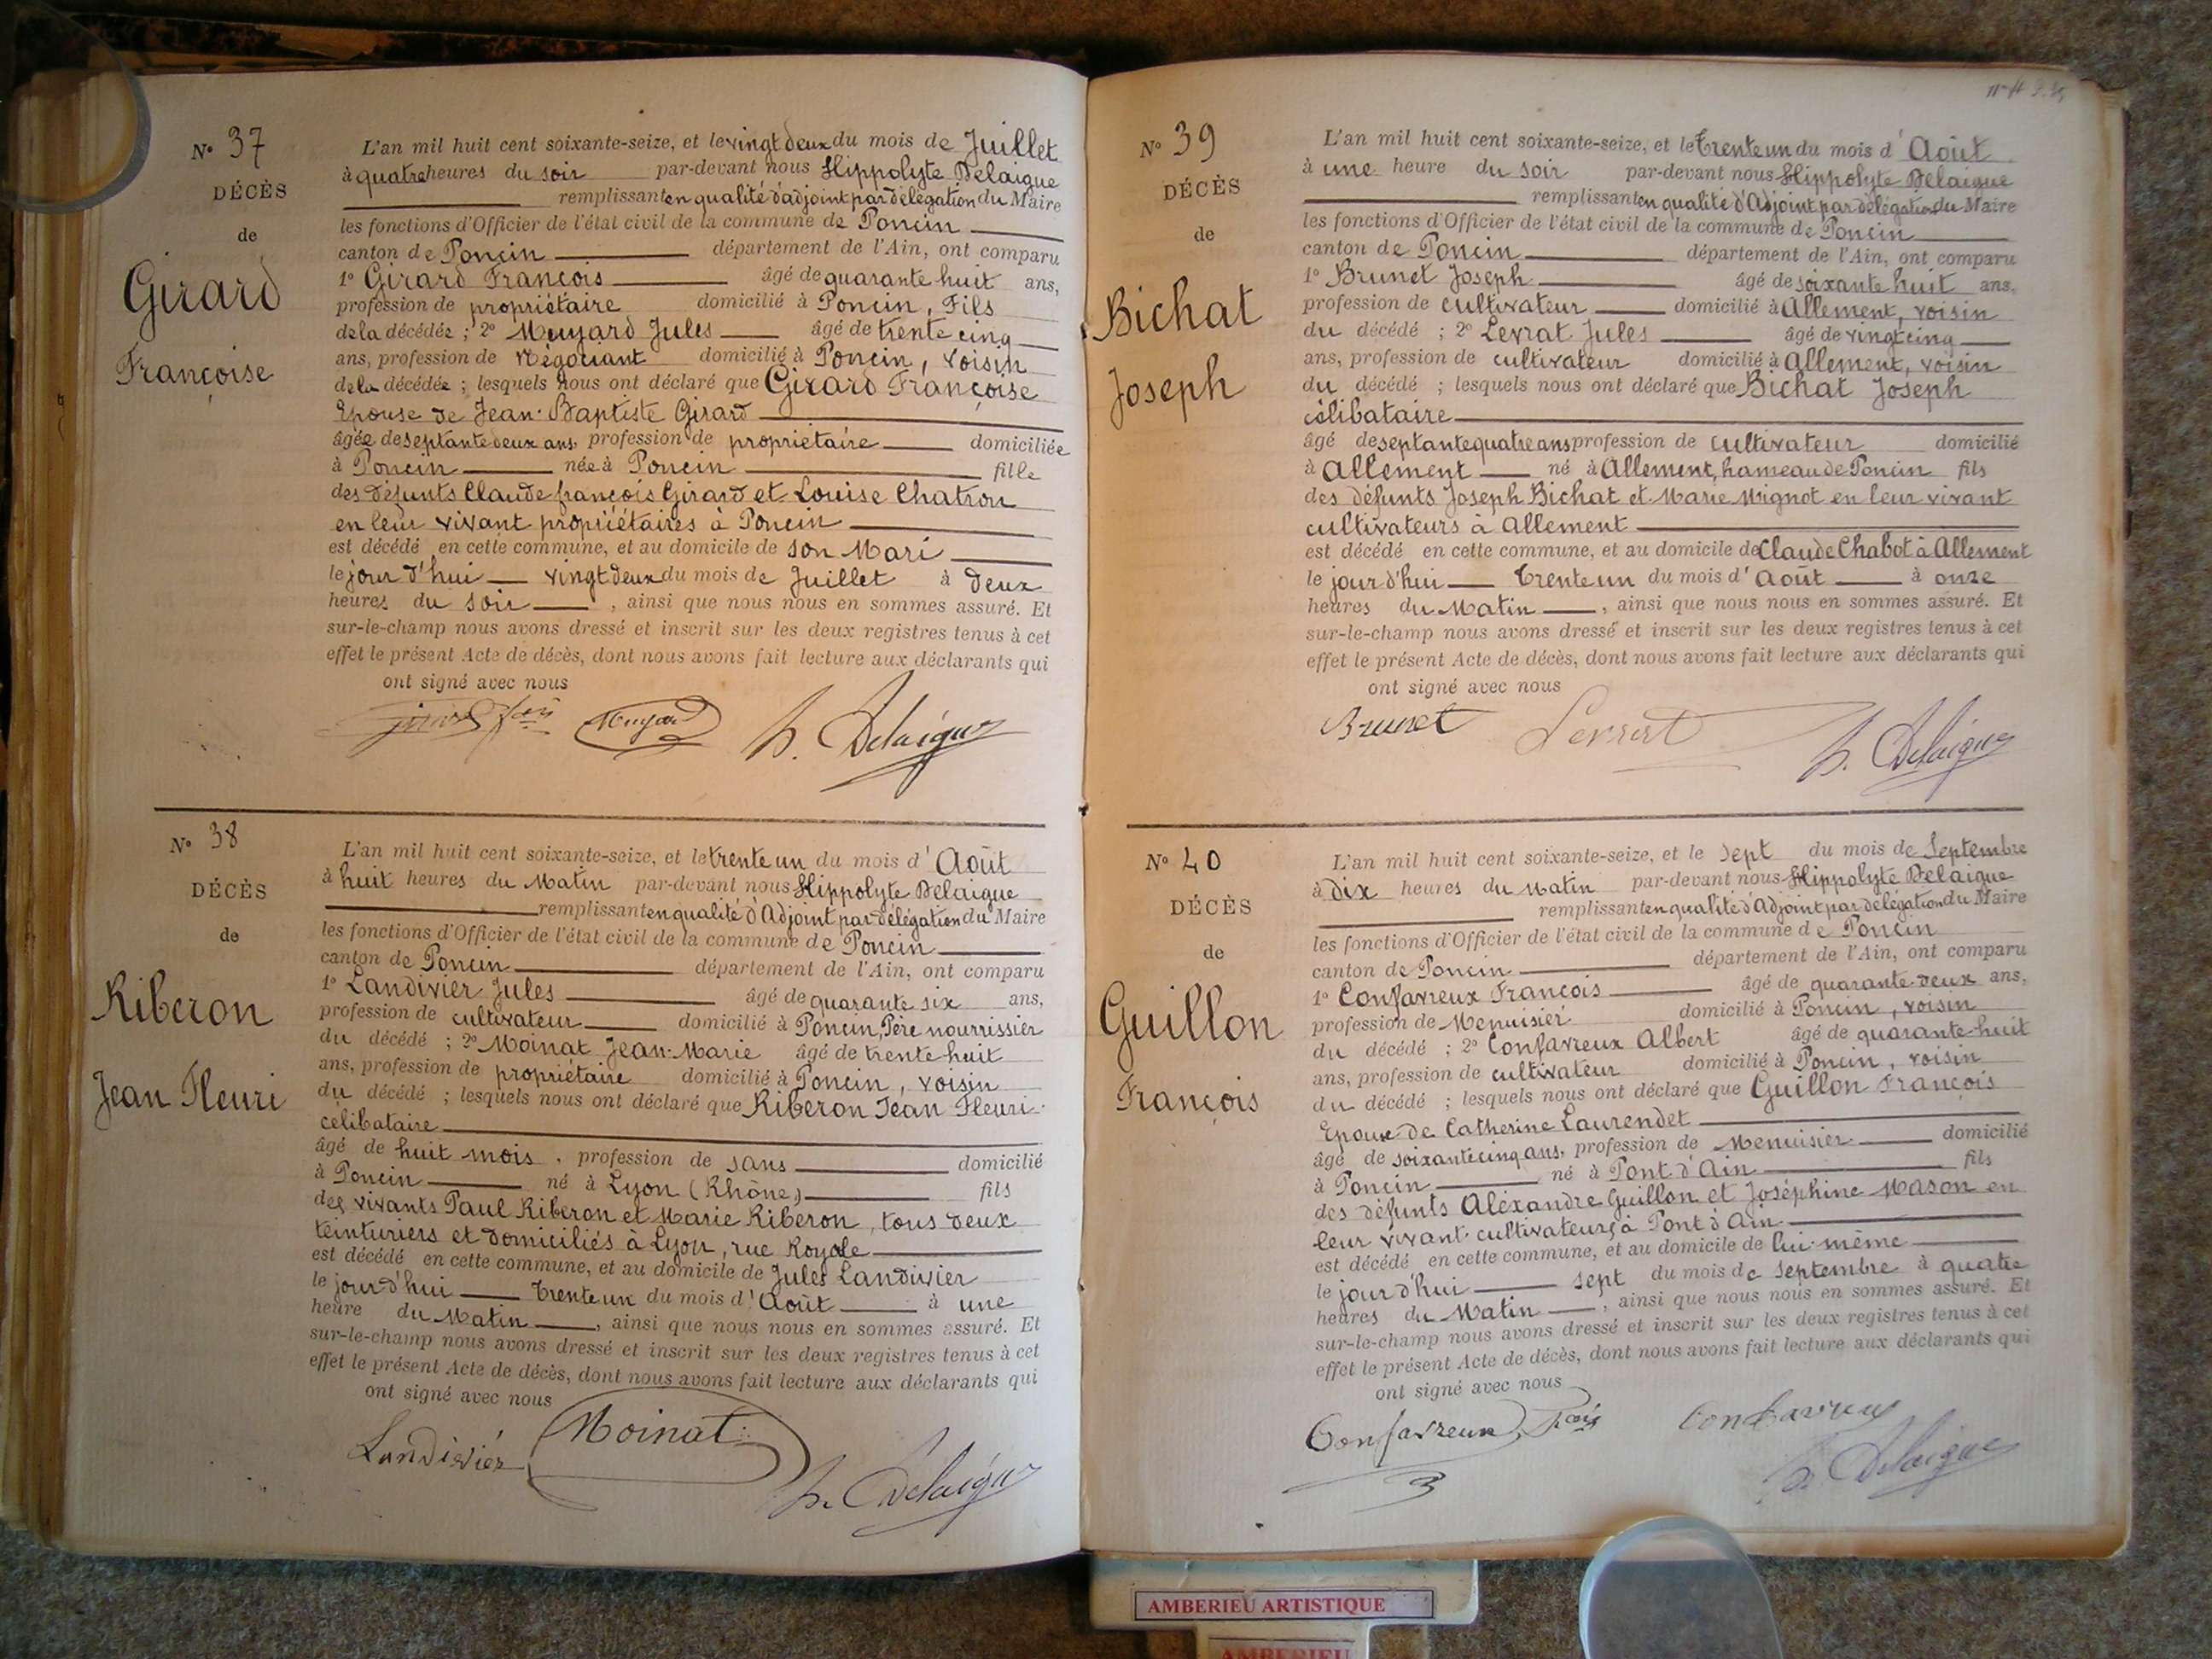 N° 37
DÉCÈS
de
Girard
Françoise
L'an mil huit cent soixante-seize, et le vingt deux du mois de Juillet
à quatre heures du soir par-devant nous Hippolyte Delaigue
remplissant en qualité d'adjoint par délégation du Maire
les fonctions d'Officier de l'état civil de la commune de Poncin
canton de Poncin département de l'Ain, ont comparu
1° Girard François âgé de quarante huit ans,
profession de propriétaire domicilié à Poncin, Fils
de la décédée ; 2° Muyard Jules âgé de trente cinq
ans, profession de Négociant domicilié à Poncin, voisin
de la décédée ; lesquels nous ont déclaré que Girard Françoise
Epouse de Jean-Baptiste Girard
âgée de septante deux ans, profession de propriétaire domiciliée
à Poncin née à Poncin fille
des défunts Claude françois Girard et Louise Chatron
en leur vivant propriétaires à Poncin
est décédé en cette commune, et au domicile de son Mari
le jour d'hui vingt deux du mois de Juillet à deux
heures du soir, ainsi que nous nous en sommes assuré. Et
sur-le-champ nous avons dressé et inscrit sur les deux registres tenus à cet
effet le présent Acte de décès, dont nous avons fait lecture aux déclarants qui
ont signé avec nous
Muyard h. Delaigue
N° 38
DÉCÈS
de
Riberon
Jean Fleuri
L'an mil huit cent soixante-seize, et le trente un du mois d'Août
à huit heures du Matin par-devant nous Hippolyte Delaigue
remplissant en qualité d'Adjoint par délégation du Maire
les fonctions d'Officier de l'état civil de la commune de Poncin
canton de Poncin département de l'Ain, ont comparu
1° Landivier Jules âgé de quarante six ans,
profession de cultivateur domicilié à Poncin, Père nourrissier
du décédé ; 2° Moinat Jean-Marie âgé de trente huit
ans, profession de propriétaire domicilié à Poncin, voisin
du décédé ; lesquels nous ont déclaré que Riberon Jean Fleuri
célibataire
âgé de huit mois, profession de sans domicilié
à Poncin né à Lyon (Rhône) fils
des vivants Paul Riberon et Marie Riberon, tous deux
teinturiers et domiciliés à Lyon, rue Royale
est décédé en cette commune, et au domicile de Jules Landivier
le jour d'hui trente un du mois d'Août à une
heure du Matin, ainsi que nous nous en sommes assuré. Et
sur-le-champ nous avons dressé et inscrit sur les deux registres tenus à cet
effet le présent Acte de décès, dont nous avons fait lecture aux déclarants qui
ont signé avec nous
Landivier Moinat h. Delaigue
N° 39
DÉCÈS
de
Bichat
Joseph
L'an mil huit cent soixante-seize, et le trente un du mois d'Août
à une heure du soir par-devant nous Hippolyte Delaigue
remplissant en qualité d'Adjoint par délégation du Maire
les fonctions d'Officier de l'état civil de la commune de Poncin
canton de Poncin département de l'Ain, ont comparu
1° Brunet Joseph âgé de soixante huit ans,
profession de cultivateur domicilié à Allement, voisin
du décédé ; 2° Levrat Jules âgé de vingt cinq
ans, profession de cultivateur domicilié à Allement, voisin
du décédé ; lesquels nous ont déclaré que Bichat Joseph
célibataire
âgé de septante quatre ans profession de cultivateur domicilié
à Allement né à Allement, hameau de Poncin fils
des défunts Joseph Bichat et Marie Mignot en leur vivant
cultivateurs à Allement
est décédé en cette commune, et au domicile de Claude Chabot à Allement
le jour d'hui trente un du mois d'Août à onze
heures du Matin, ainsi que nous nous en sommes assuré. Et
sur-le-champ nous avons dressé et inscrit sur les deux registres tenus à cet
effet le présent Acte de décès, dont nous avons fait lecture aux déclarants qui
ont signé avec nous
Brunet Levrat h. Delaigue
N° 40
DÉCÈS
de
Guillon
François
L'an mil huit cent soixante-seize, et le sept du mois de Septembre
à dix heures du Matin par-devant nous Hippolyte Delaigue
remplissant en qualité d'Adjoint par délégation du Maire
les fonctions d'Officier de l'état civil de la commune de Poncin
canton de Poncin département de l'Ain, ont comparu
1° Confavreux François âgé de quarante-deux ans,
profession de Menuisier domicilié à Poncin, voisin
du décédé ; 2° Confavreux Albert âgé de quarante-huit
ans, profession de cultivateur domicilié à Poncin, voisin
du décédé ; lesquels nous ont déclaré que Guillon François
Epoux de Catherine Laurendet
âgé de soixante cinq ans, profession de Menuisier domicilié
à Poncin né à Pont d'Ain fils
des défunts Aléxandre Guillon et Joséphine Mason en
leur vivant cultivateurs à Pont d'Ain
est décédé en cette commune, et au domicile de lui-même
le jour d'hui sept du mois de Septembre à quatre
heures du Matin, ainsi que nous nous en sommes assuré. Et
sur-le-champ nous avons dressé et inscrit sur les deux registres tenus à cet
effet le présent Acte de décès, dont nous avons fait lecture aux déclarants qui
ont signé avec nous
Confavreux Fçois Confavreux
h. Delaigue
AMBERIEU ARTISTIQUE
AMBERIEU